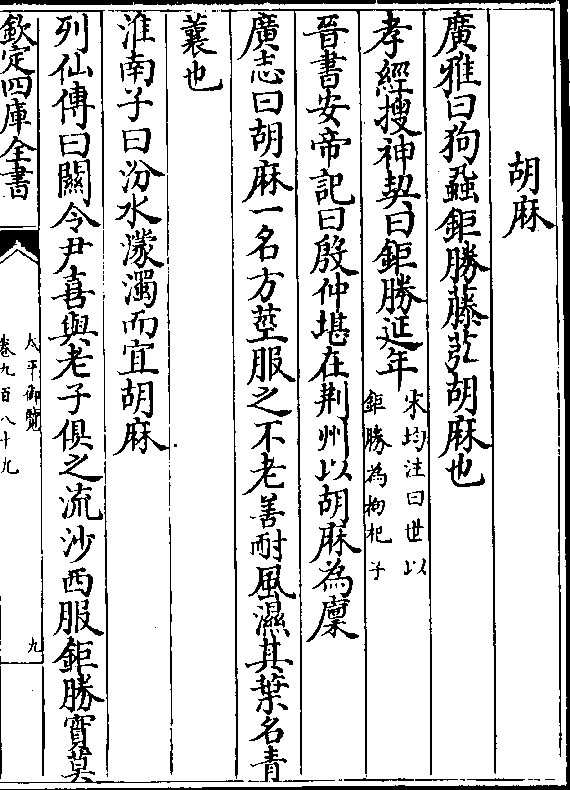 胡麻
廣雅曰狗蝨鉅勝藤苰胡麻也
孝經援神契曰鉅勝延年宋均注曰世以
鉅勝為枸杞子
晉書安帝記曰殷仲堪在荆州以胡麻為廩
廣志曰胡麻一名方莖服之不老善耐風濕其葉名青
蘘也
淮南子曰汾水濛濁而宜胡麻
列仙傳曰關令尹喜與老子俱之流沙西服鉅勝實莫
欽定四庫全書
太平御覽
卷九百八十九
九